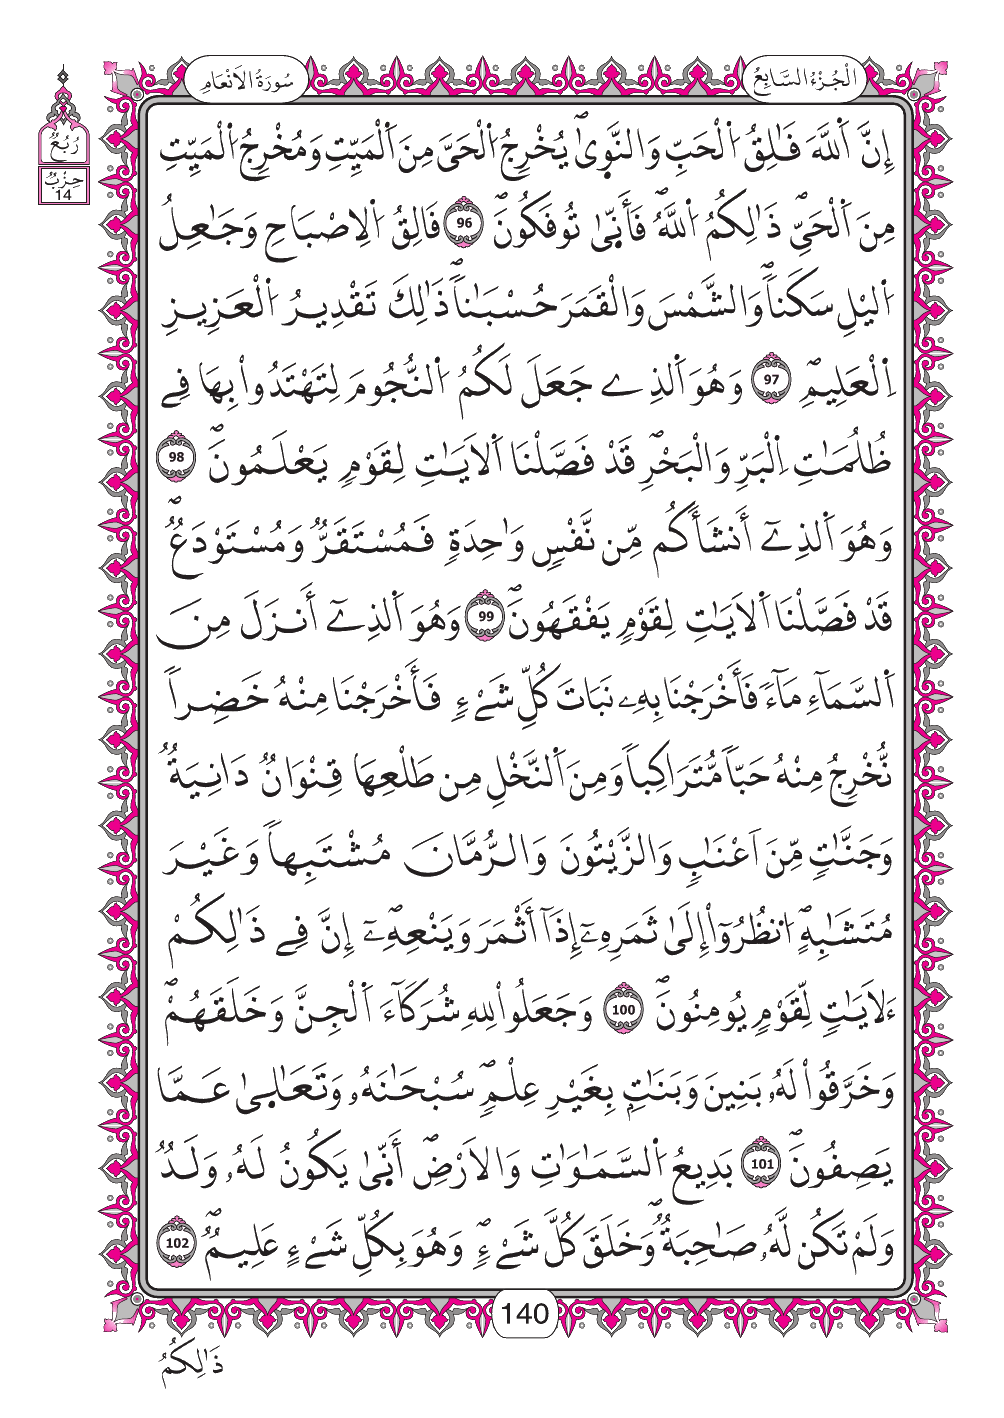 الْجُزْءُ السَّابِعُ
سُورَةُ الاَنْعَامِ
رُبُعُ
حِزْبٌ
14
إِنَّ اَ۬للَّهَ فَٰلِقُ اُ۬لْحَبِّ وَالنَّو۪ىٰۖ يُخْرِجُ اُ۬لْحَيَّ مِنَ اَ۬لْمَيِّتِ وَمُخْرِجُ اُ۬لْمَيِّتِ
مِنَ اَ۬لْحَيِّۖ ذَٰلِكُمُ اُ۬للَّهُۖ فَأَنّ۪ىٰ تُوفَكُونَۖ 96 فَالِقُ اُ۬لِاصْبَاحِ وَجَٰعِلُ
اُ۬ليْلِ سَكَناٗۖ وَالشَّمْسَ وَالْقَمَرَ حُسْبَٰناٗۖ ذَٰلِكَ تَقْدِيرُ اُ۬لْعَزِيزِ
اِ۬لْعَلِيمِۖ 97 وَهُوَ اَ۬لذِے جَعَلَ لَكُمُ اُ۬لنُّجُومَ لِتَهْتَدُواْ بِهَا فِے
ظُلُمَٰتِ اِ۬لْبَرِّ وَالْبَحْرِۖ قَدْ فَصَّلْنَا اَ۬لَايَٰتِ لِقَوْمٖ يَعْلَمُونَۖ 98
وَهُوَ اَ۬لذِےٓ أَنشَأَكُم مِّن نَّفْسٖ وَٰحِدَةٖ فَمُسْتَقَرّٞ وَمُسْتَوْدَعٞۖ
قَدْ فَصَّلْنَا اَ۬لَايَٰتِ لِقَوْمٖ يَفْقَهُونَۖ 99 وَهُوَ اَ۬لذِےٓ أَنزَلَ مِنَ
اَ۬لسَّمَآءِ مَآءٗ فَأَخْرَجْنَا بِهِۦ نَبَاتَ كُلِّ شَےْءٖ فَأَخْرَجْنَا مِنْهُ خَضِراٗ
نُّخْرِجُ مِنْهُ حَبّاٗ مُّتَرَاكِباٗ وَمِنَ اَ۬لنَّخْلِ مِن طَلْعِهَا قِنْوَانٞ دَانِيَةٞ
وَجَنَّٰتٖ مِّنَ اَعْنَٰبٖ وَالزَّيْتُونَ وَالرُّمَّانَ مُشْتَبِهاٗ وَغَيْرَ
مُتَشَٰبِهٍۖ اِ۟نظُرُوٓاْ إِلَىٰ ثَمَرِهِۦٓ إِذَآ أَثْمَرَ وَيَنْعِهِۦٓۖ إِنَّ فِے ذَٰلِكُمْ
ءَلَايَٰتٖ لِّقَوْمٖ يُومِنُونَۖ 100 وَجَعَلُواْ لِلهِ شُرَكَآءَ اَ۬لْجِنَّ وَخَلَقَهُمْۖ
وَخَرَّقُواْ لَهُۥ بَنِينَ وَبَنَٰتِۢ بِغَيْرِ عِلْمٖۖ سُبْحَٰنَهُۥ وَتَعَٰل۪ىٰ عَمَّا
يَصِفُونَۖ 101 بَدِيعُ اُ۬لسَّمَٰوَٰتِ وَالَارْضِۖ أَنّ۪ىٰ يَكُونُ لَهُۥ وَلَدٞ
وَلَمْ تَكُن لَّهُۥ صَٰحِبَةٞۖ وَخَلَقَ كُلَّ شَےْءٖۖ وَهُوَ بِكُلِّ شَےْءٍ عَلِيمٞۖ 102
140
ذَٰلِكُمُ